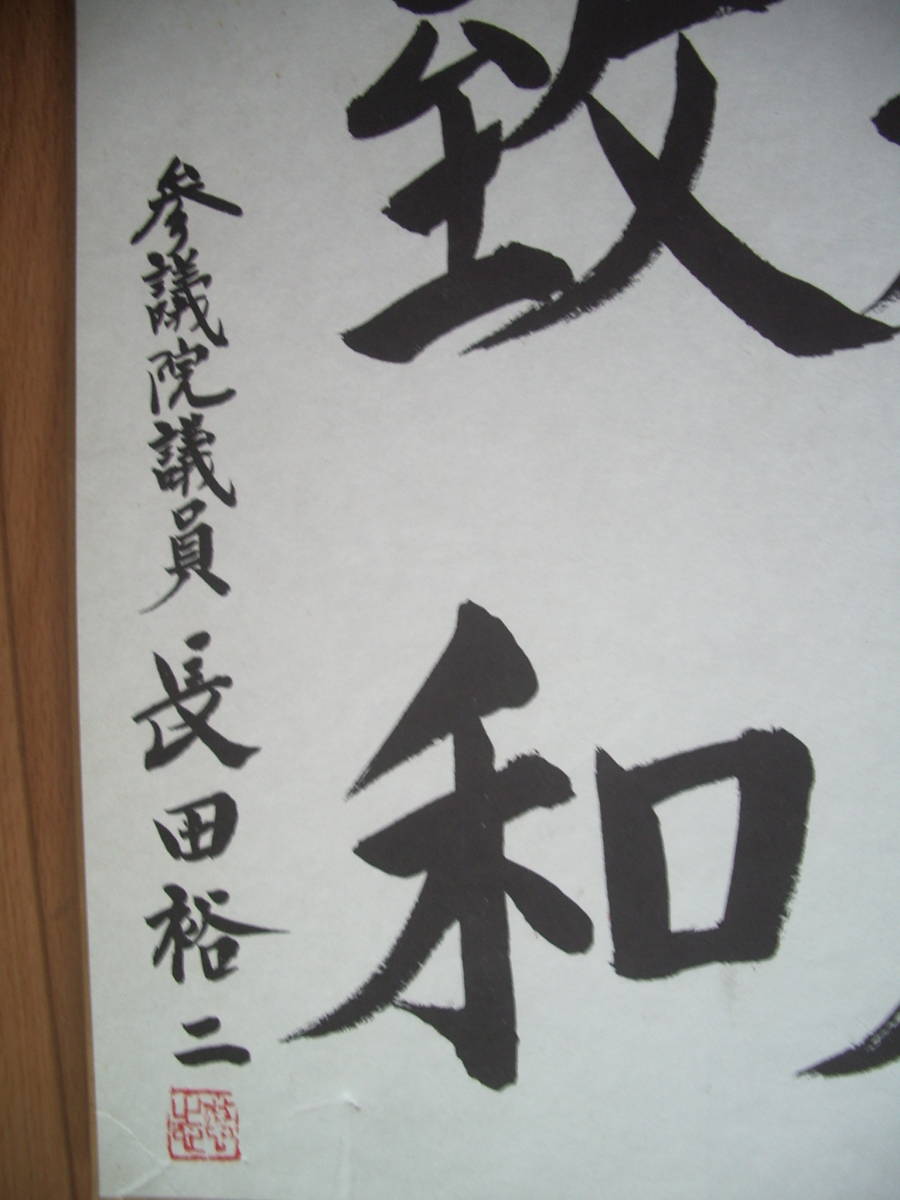 致和
參議院議員 長田裕二